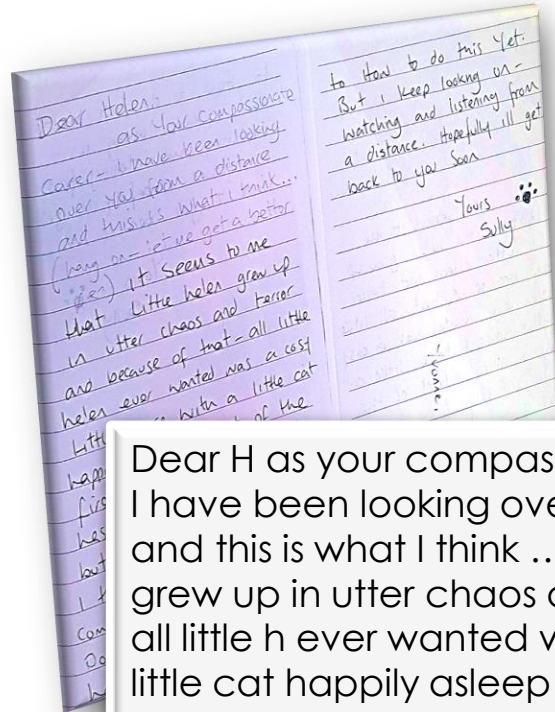 Dear Helen,
as Your Compassionate
Carer- I have been looking
over you from a distance
and this is what I think...
(hang on - let me get a better
pen) it seems to me
that Little helen grew up
in utter chaos and terror
and because of that - all little
helen ever wanted was a cosy
Little with a little cat
of the
to How to do this Yet.
But i keep lookng on-
watching and listening from
a distance. Hopefully ill get
back to you Soon
Yours
Sully
Dear H as your compas
I have been looking ove
and this is what I think ...
grew up in utter chaos
all little h ever wanted
little cat happily asleep